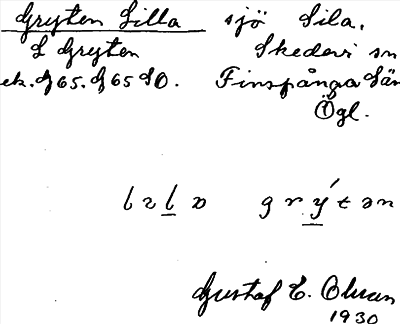 Gryten Lilla sjö Lila.
L Gryten Skedevi sn
ek. J65. J65 SO. Finspånga län
Ögl.
grýtən
Gustaf E. Olsson
1930